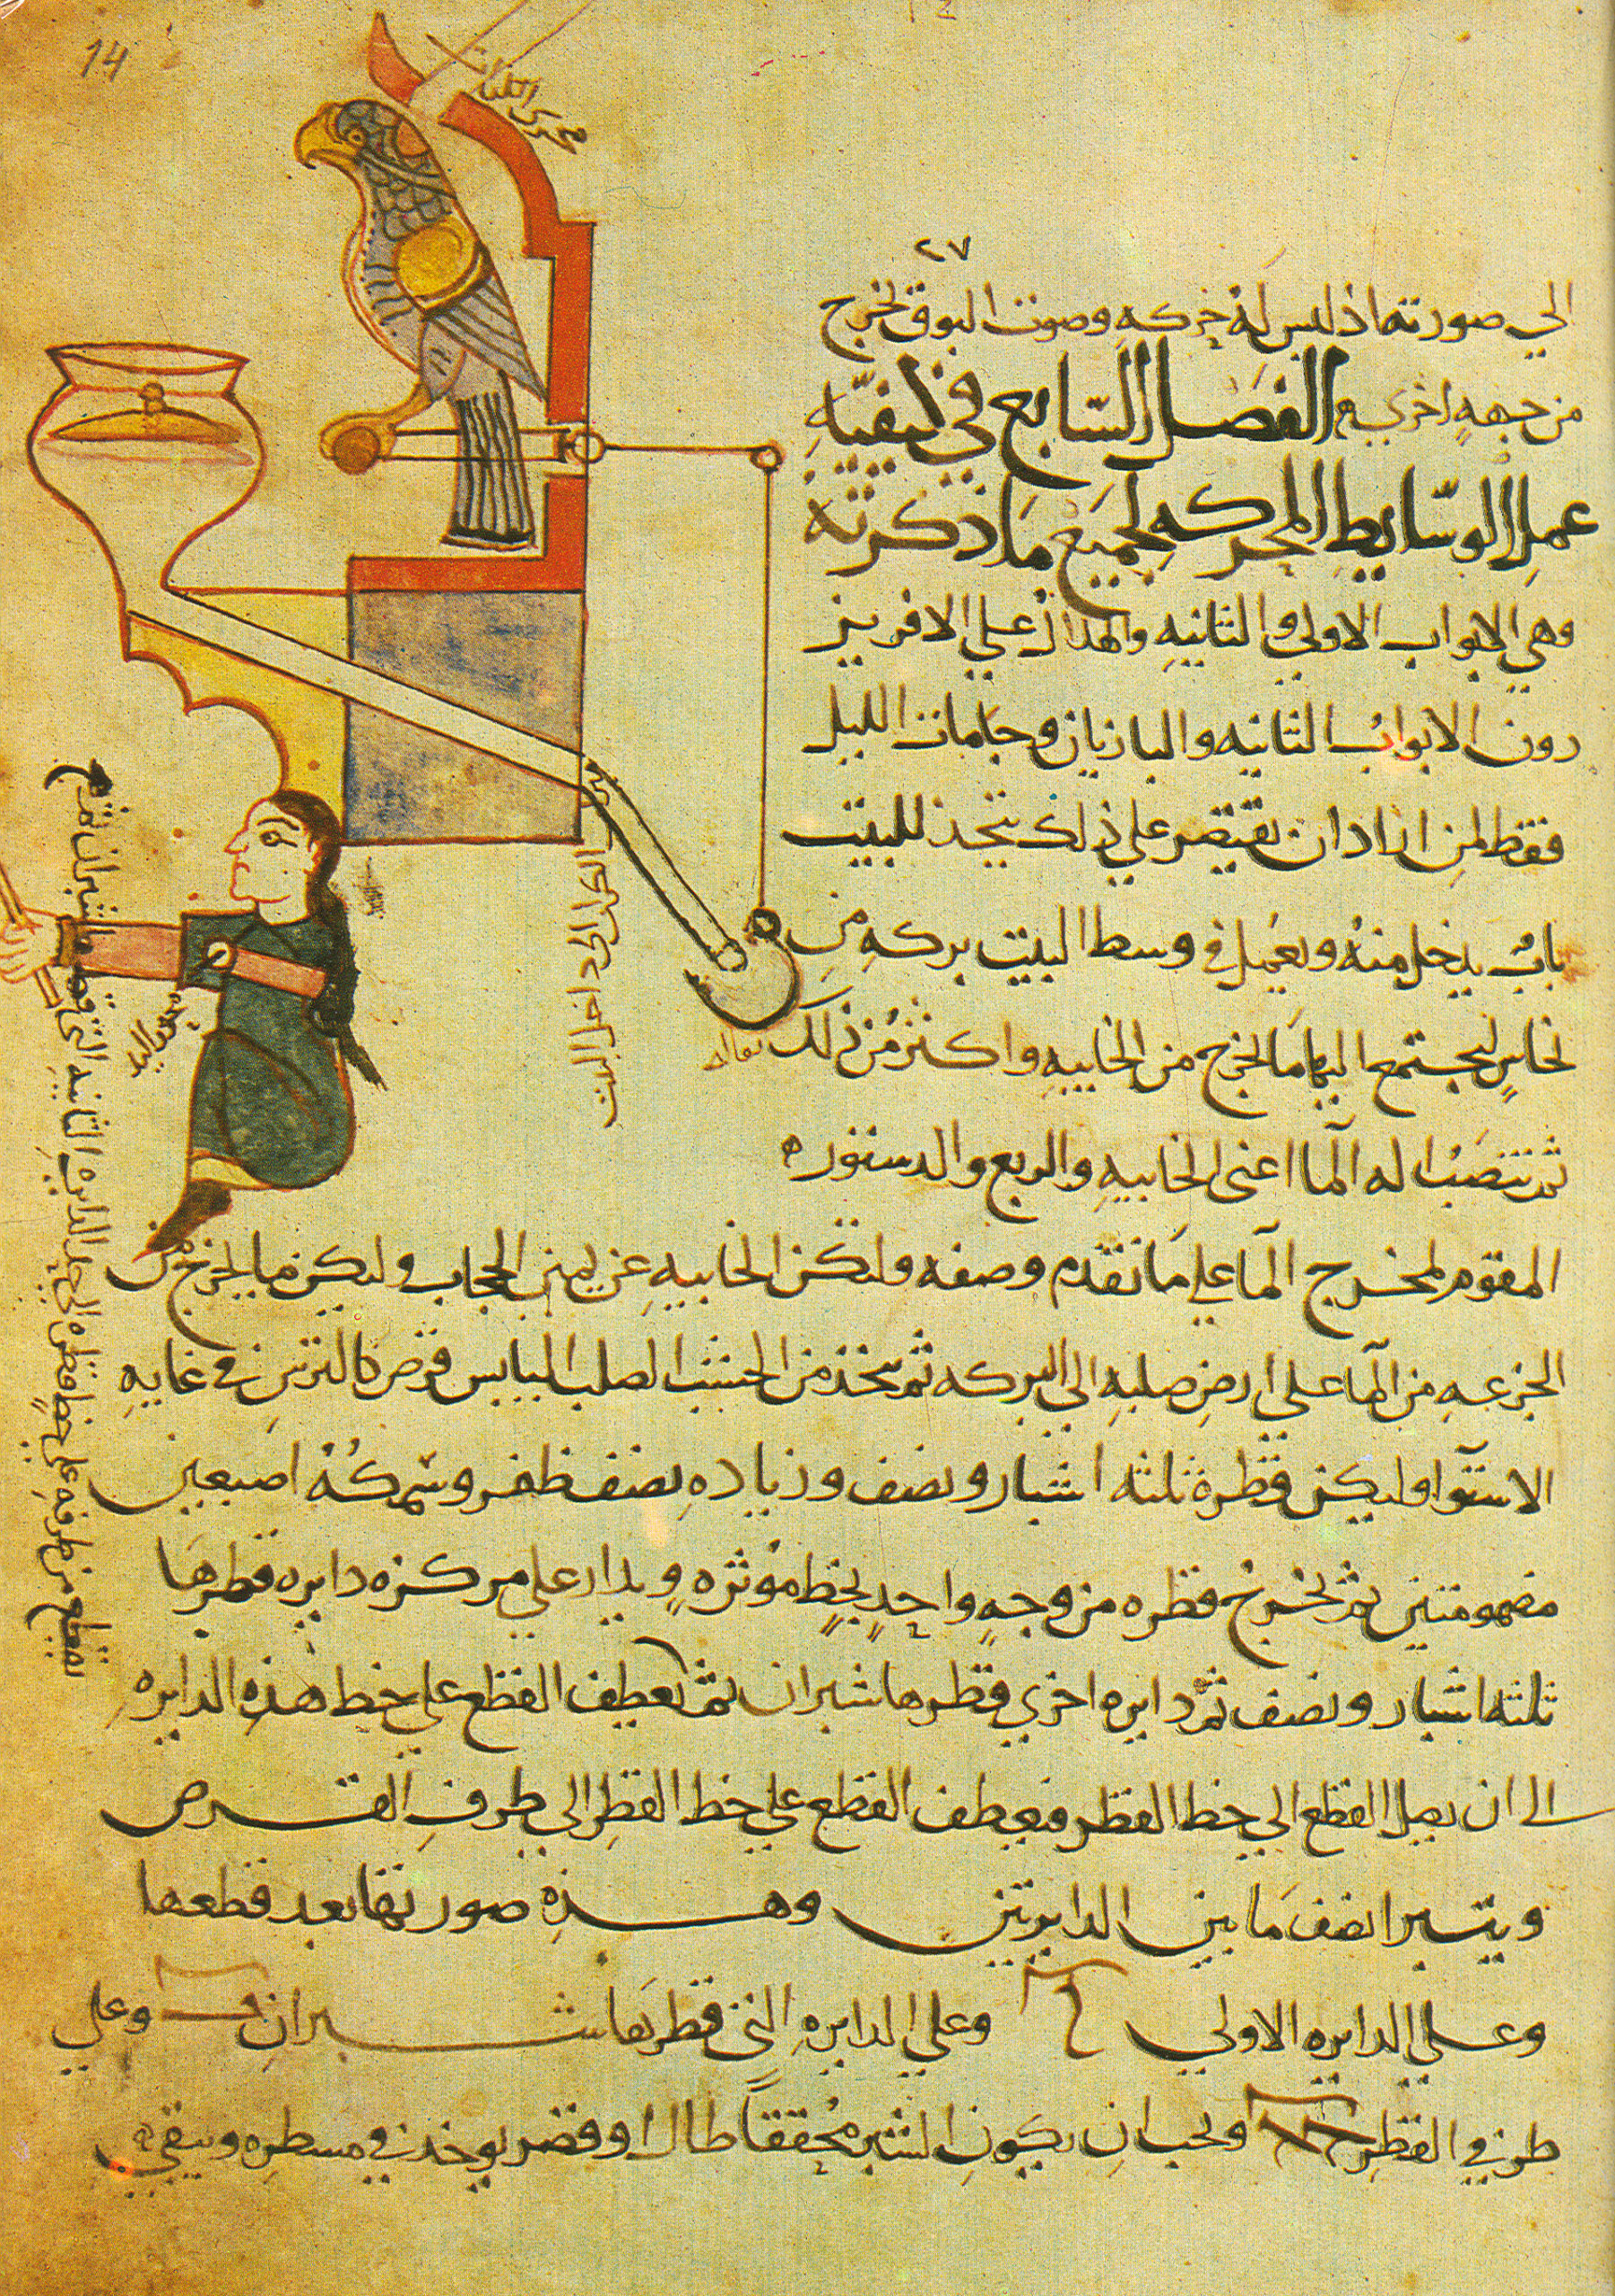 14
٢٧
الي صورتها اذ ليس له حركه وصوت البوق يخرج
من جهه اخري ه الفصل السابع في كيفيه
عمل الوسايط المحركه لجميع ما ذكرته
وهي الابواب الاولي والثانيه والهلال علي الافريز
دون الابواب الثانيه والبازيان وجامات الليل
فقط لمن اراد ان يقتصر علي ذلك يتخذ للبيت
باب يدخل منه ويعمل في وسط البيت بركه من
نحاس ليجتمع اليها ما يخرج من الخابيه واكثر من ذلك
ثم تنصب اله الما اعني الخابيه والربع والدستور ه
المقوم لمخرج الما علي ما تقدم وصفه ولتكن الخابيه عن يمين الحجاب وليكن ما يخرج من
الجزعه من الما علي ارض صلبه الي البركه ثم يتخذ من الخشب الصلب اليابس قرص كالترس في غايه
الاستوا وليكن قطره ثلثه اشبار ونصف وزياده نصف ظفر وسمكه اصبعين
مضمومتين ثم يخرج قطره من وجه واحد بخط موثره ويدار علي مركزه دايره قطرها
ثلثه اشبار ونصف ثم دايره اخري قطرها شبران ثم يعطف القطع علي خط هذه الدايره
الي ان يصل القطع الي خط القطر فيعطف القطع علي خط القطر الي طرف القرص
ويتسير نصف ما بين الدايرتين وهذه صورتها بعد قطعها
وعلي الدايره الاولي وعلي الدايره التي قطرها شبران وعلي
طرفي القطر ويجب ان يكون الشبر محققا طال او قصر يوخذ في مسطره ويبقي ه
محرك
داخل البيت
يقطع من طرفه علي خط قطره الي حد الدايره الثانيه التي قطرها شبران